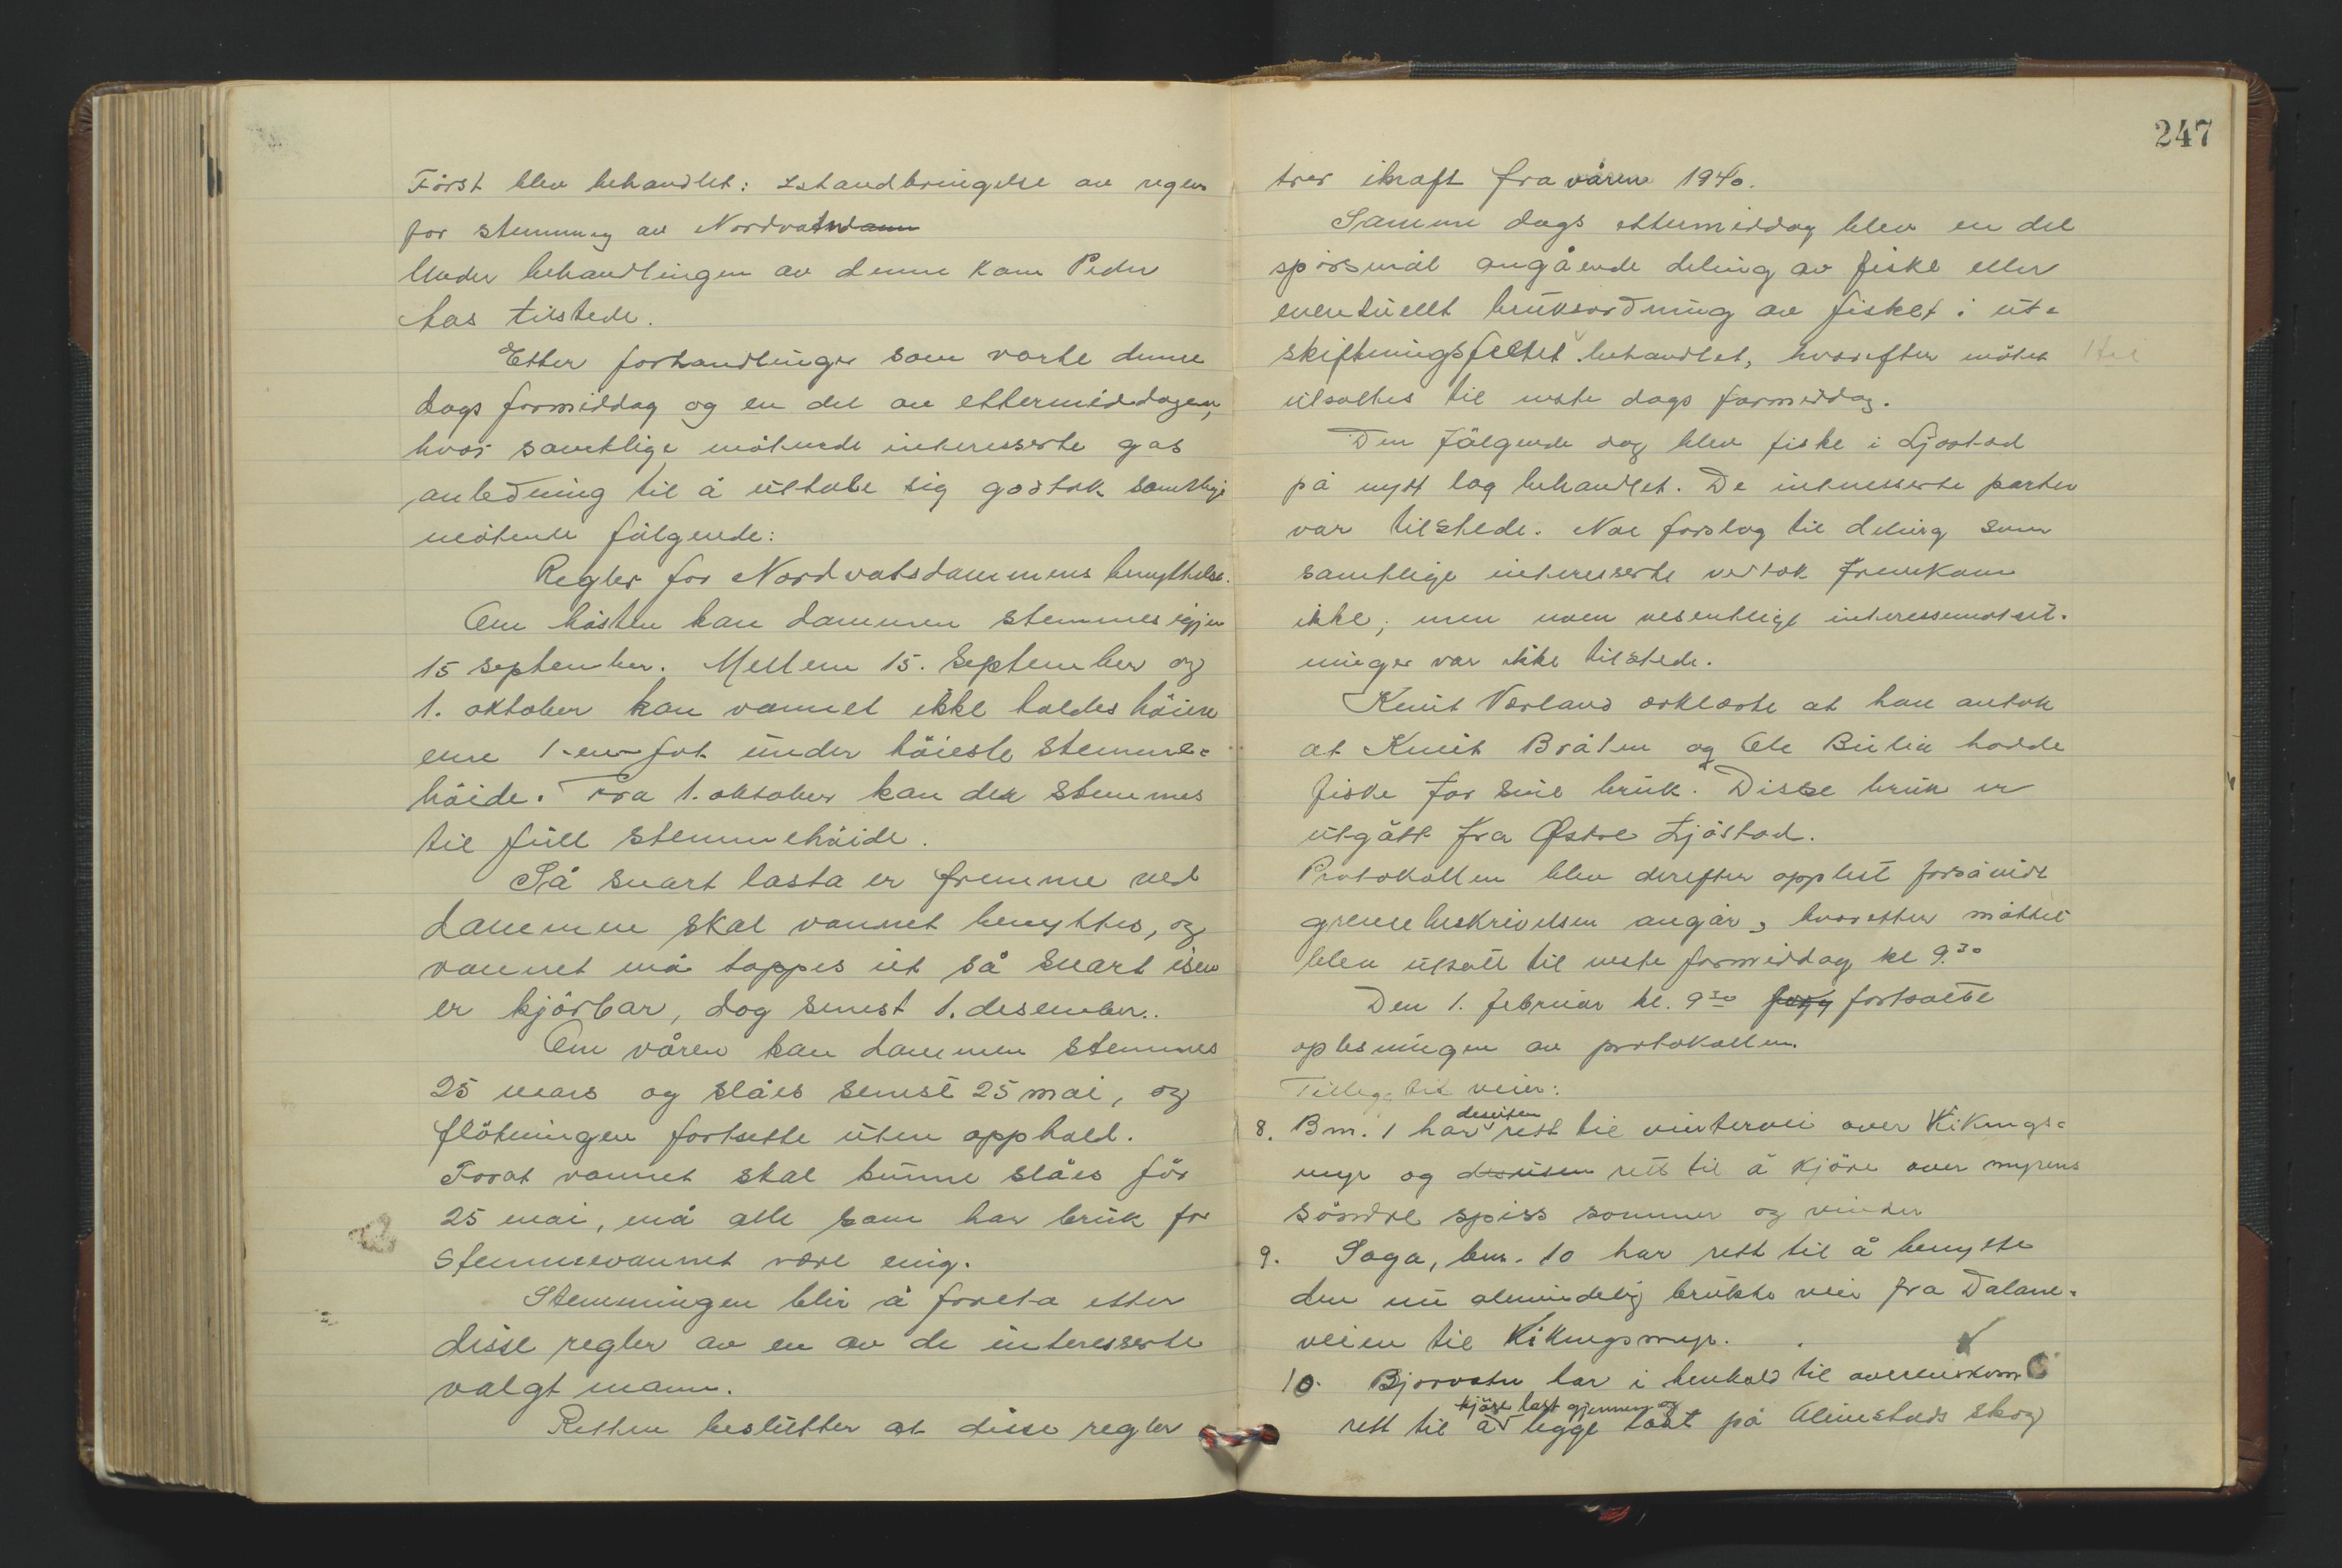 Först blev behandlet: Istandbringelse av regler
for stemming av Nordvatndamm
Under behandlingen av denne kom Peder
Aas tilstede.
Etter forhandlinger som varte denne
dags formiddag og en del av ettermiddagen,
hvor samtlige mötende interesserte gas
anledning til å uttale sig godtok samtlige
mötende fölgende:
Regler for Nordvatsdammens benyttelse.
Om hösten kan dammen stemmes igjen
15 september. Mellem 15. september og
1. oktober kan vannet ikke holdes höiere
enn 1-en fot under höieste stemme-
höide. Fra 1. oktober kan der stemmes
til full stemmehöide.
Så snart lasta er fremme ved
dammen skal vannet benyttes, og
vannet må tappes ut så snart isen
er kjörbar, dog senest 1. desember.
Om våren kan dammen stemmes
25 mars og slåes senest 25 mai, og
flötningen fortsette uten opphold.
Forat vannet skal kunne slåes för
25 mai, må alle som har bruk for
stemmevannet være enig.
Stemmingen blir å foreta etter
disse regler av en av de interesserte
valgt mann.
Retten beslutter at disse regler
247
trer ikraft fra våren 1940.
Samme dags ettermiddag blev en del
spörsmål angående deling av fiske eller
eventuellt bruksordning av fisket i ut-
skiftningsfeltet behandlet, hvorefter mötet
utsattes til neste dags formiddag.
Den fölgende dag blev fiske i Ljostad
på nytt lag behandlet. De interesserte parter
var tilstede. Noe forslag til deling som
samtlige interesserte vedtok fremkom
ikke, men noen vesentlige interessemotset-
ninger var ikke tilstede.
Knut Værland erklærte at han antok
at Knut Bråten og Ole Bulia hadde
fiske for sine bruk. Disse bruk er
utgått fra Østre Ljöstad.
Protokollen blev derefter opplest forsåvidt
grensebeskrivelsen angår, hvoretter mötet
blev utsatt til neste formiddag kl 9.30
Den 1. februar kl. 9 30 fortsatte
oplesningen av protokollen.
Tillegg til veier:
8. Bnr. 1 har desuten rett til vintervei over Kikings-
myr og desuten rett til å kjöre over myrens
söndre spiss sommer og vinter
9. Saga, bnr. 10 har rett til å benytte
den nu almindelig brukte vei fra Dalane-
veien til Kikingsmyr.
10. Bjorvatn har i henhold til overenskom
rett til å kjöre last gjennem og legge last på Alimstads skog